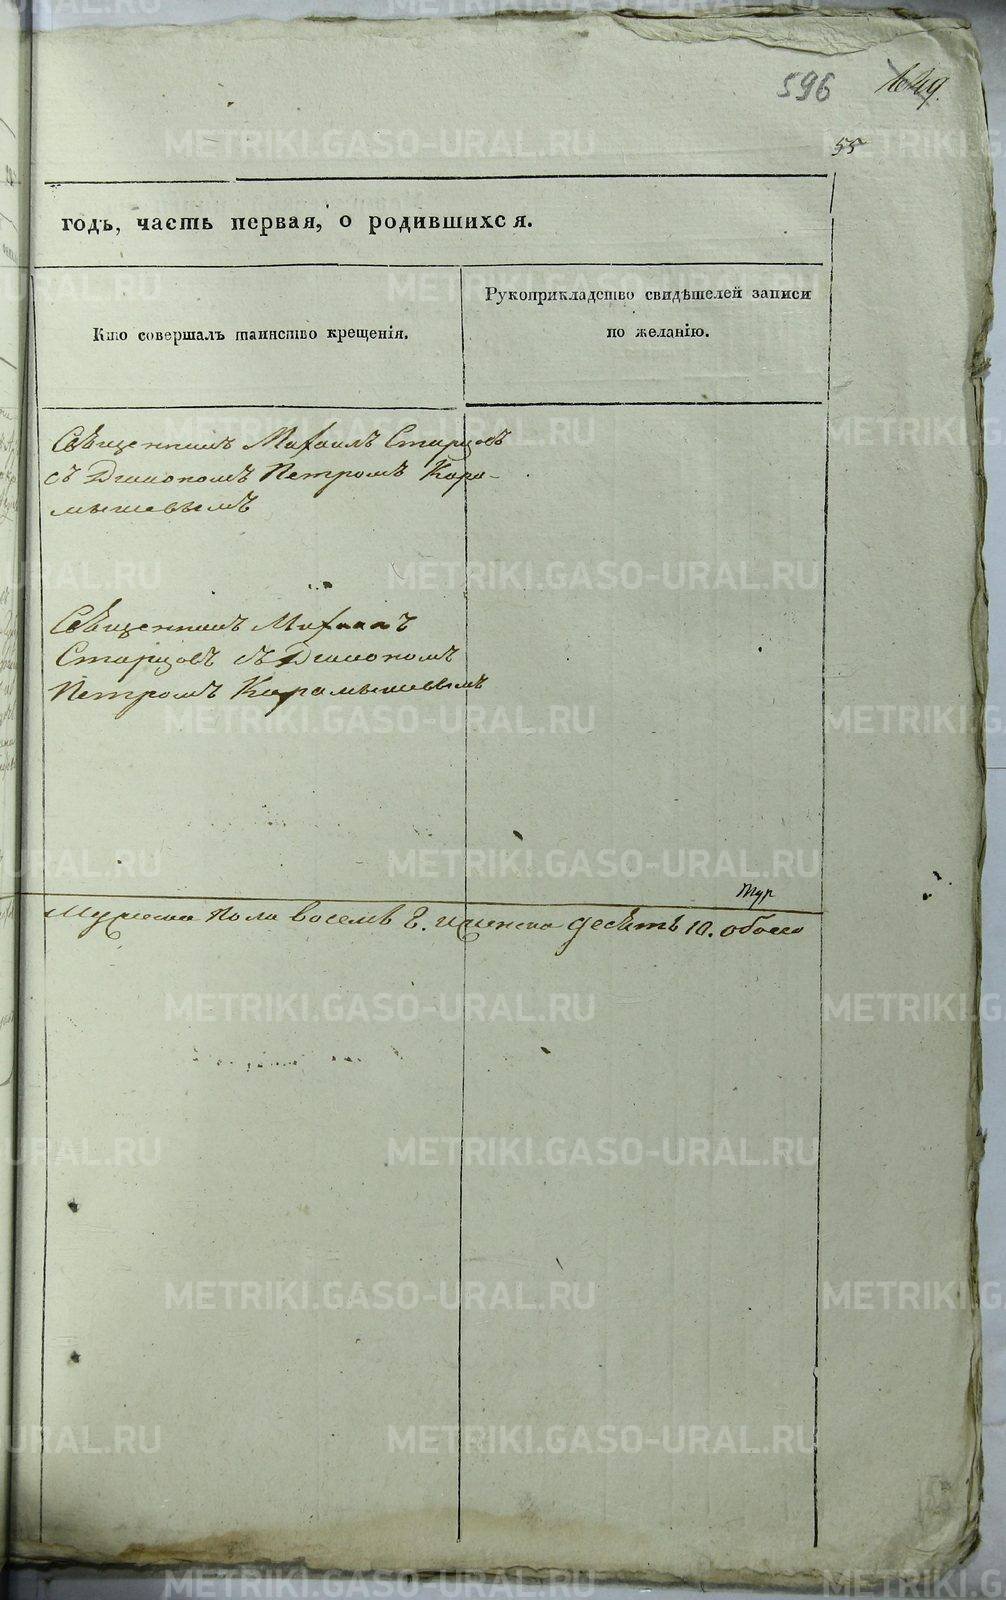 596
55
годъ, часть первая, о родившихся.
Кто совершалъ таинство крещенія.
Рукоприкладство свидѣтелей записи
по желанію.
Священникъ Михаилъ Старцовъ
съ Дьякономъ Петромъ Кара-
мышевымъ
Священникъ Михаилъ
Старцовъ съ Дьякономъ
Петромъ Карамышевымъ
тур
Мужеска пола восемь 8. и женска десять 10. обоего
METRIKI.GASO-URAL.RU